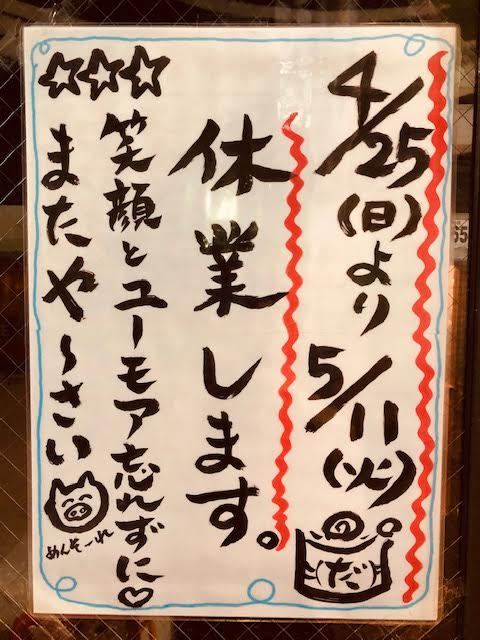 4/25(日)より5/11(火)。
休業します。
笑顔とユーモア忘れずに♡
☆☆☆またや〜さい
めんそーれ
の
だ
55